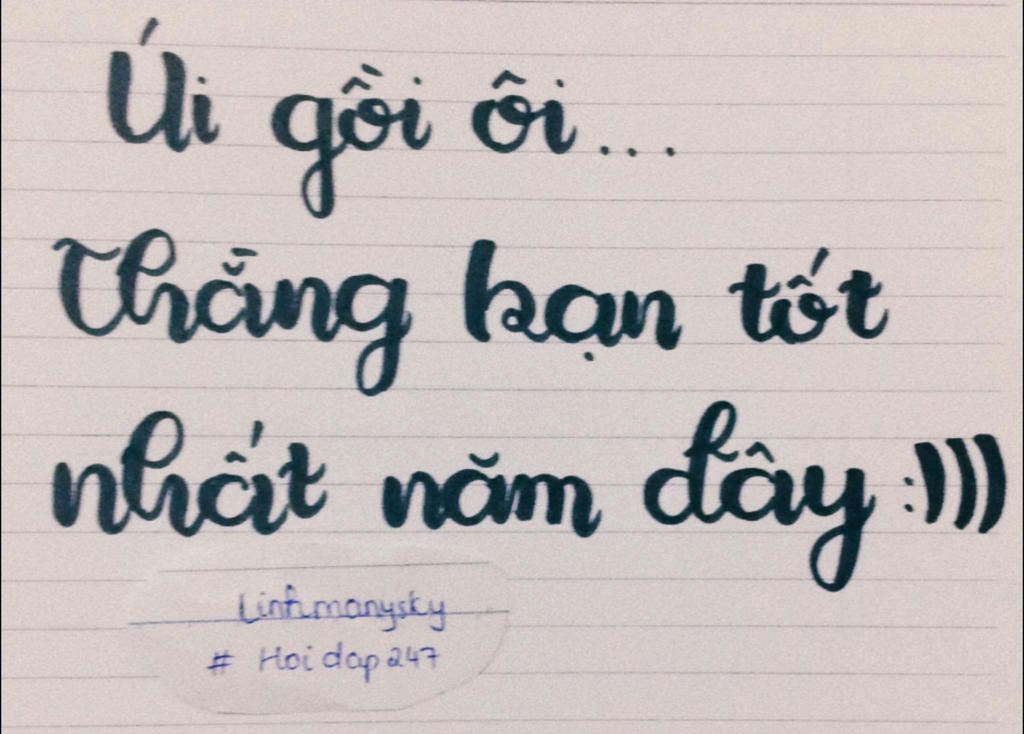 Úi gồi ôi...
Thằng bạn tốt
nhất năm đây :)))
Linhmanysky
# Hoidap247